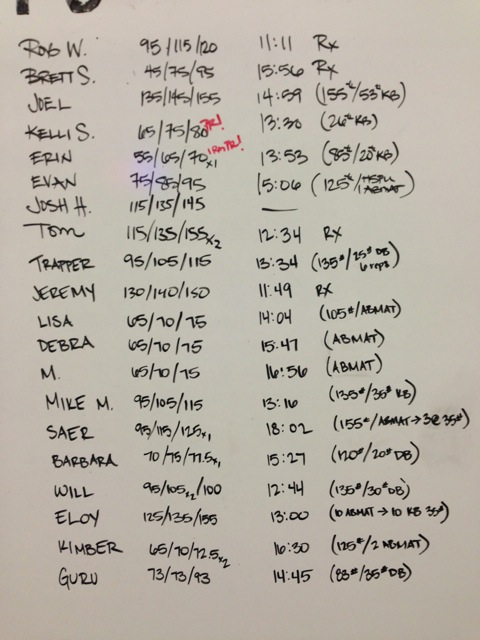 ROB W. 95/115/120 11:11 Rx
BRETT S. 45/75/95 15:56 Rx
JOEL 135/145/155 14:59 (155#/53# KB)
KELLI S. 65/75/80 PR! 13:30 (26# KB)
ERIN 55/65/70x1 1RM PR! 13:53 (85#/20# KB)
EVAN 75/85/95 15:06 (125#/HSPU 1 ABMAT)
JOSH H. 115/135/145 —
TOM 115/135/155x2 12:34 RX
TRAPPER 95/105/115 13:34 (135#/25# DB 6 reps)
JEREMY 130/140/150 11:49 RX
LISA 65/70/75 14:04 (105#/ABMAT)
DEBRA 65/70/75 15:47 (ABMAT)
M. 65/70/75 16:56 (ABMAT)
MIKE M. 95/105/115 13:16 (135#/35# KB)
SAER 95/115/125x1 18:02 (155#/ABMAT→3@35#)
BARBARA 70/75/77.5x1 15:27 (120#/20# DB)
WILL 95/105x2/100 12:44 (135#/30# DB)
ELOY 125/135/155 13:00 (10 ABMAT → 10 KB 35#)
KIMBER 65/70/72.5x2 16:30 (125#/2 ABMAT)
GURU 73/73/93 14:45 (83#/35# DB)